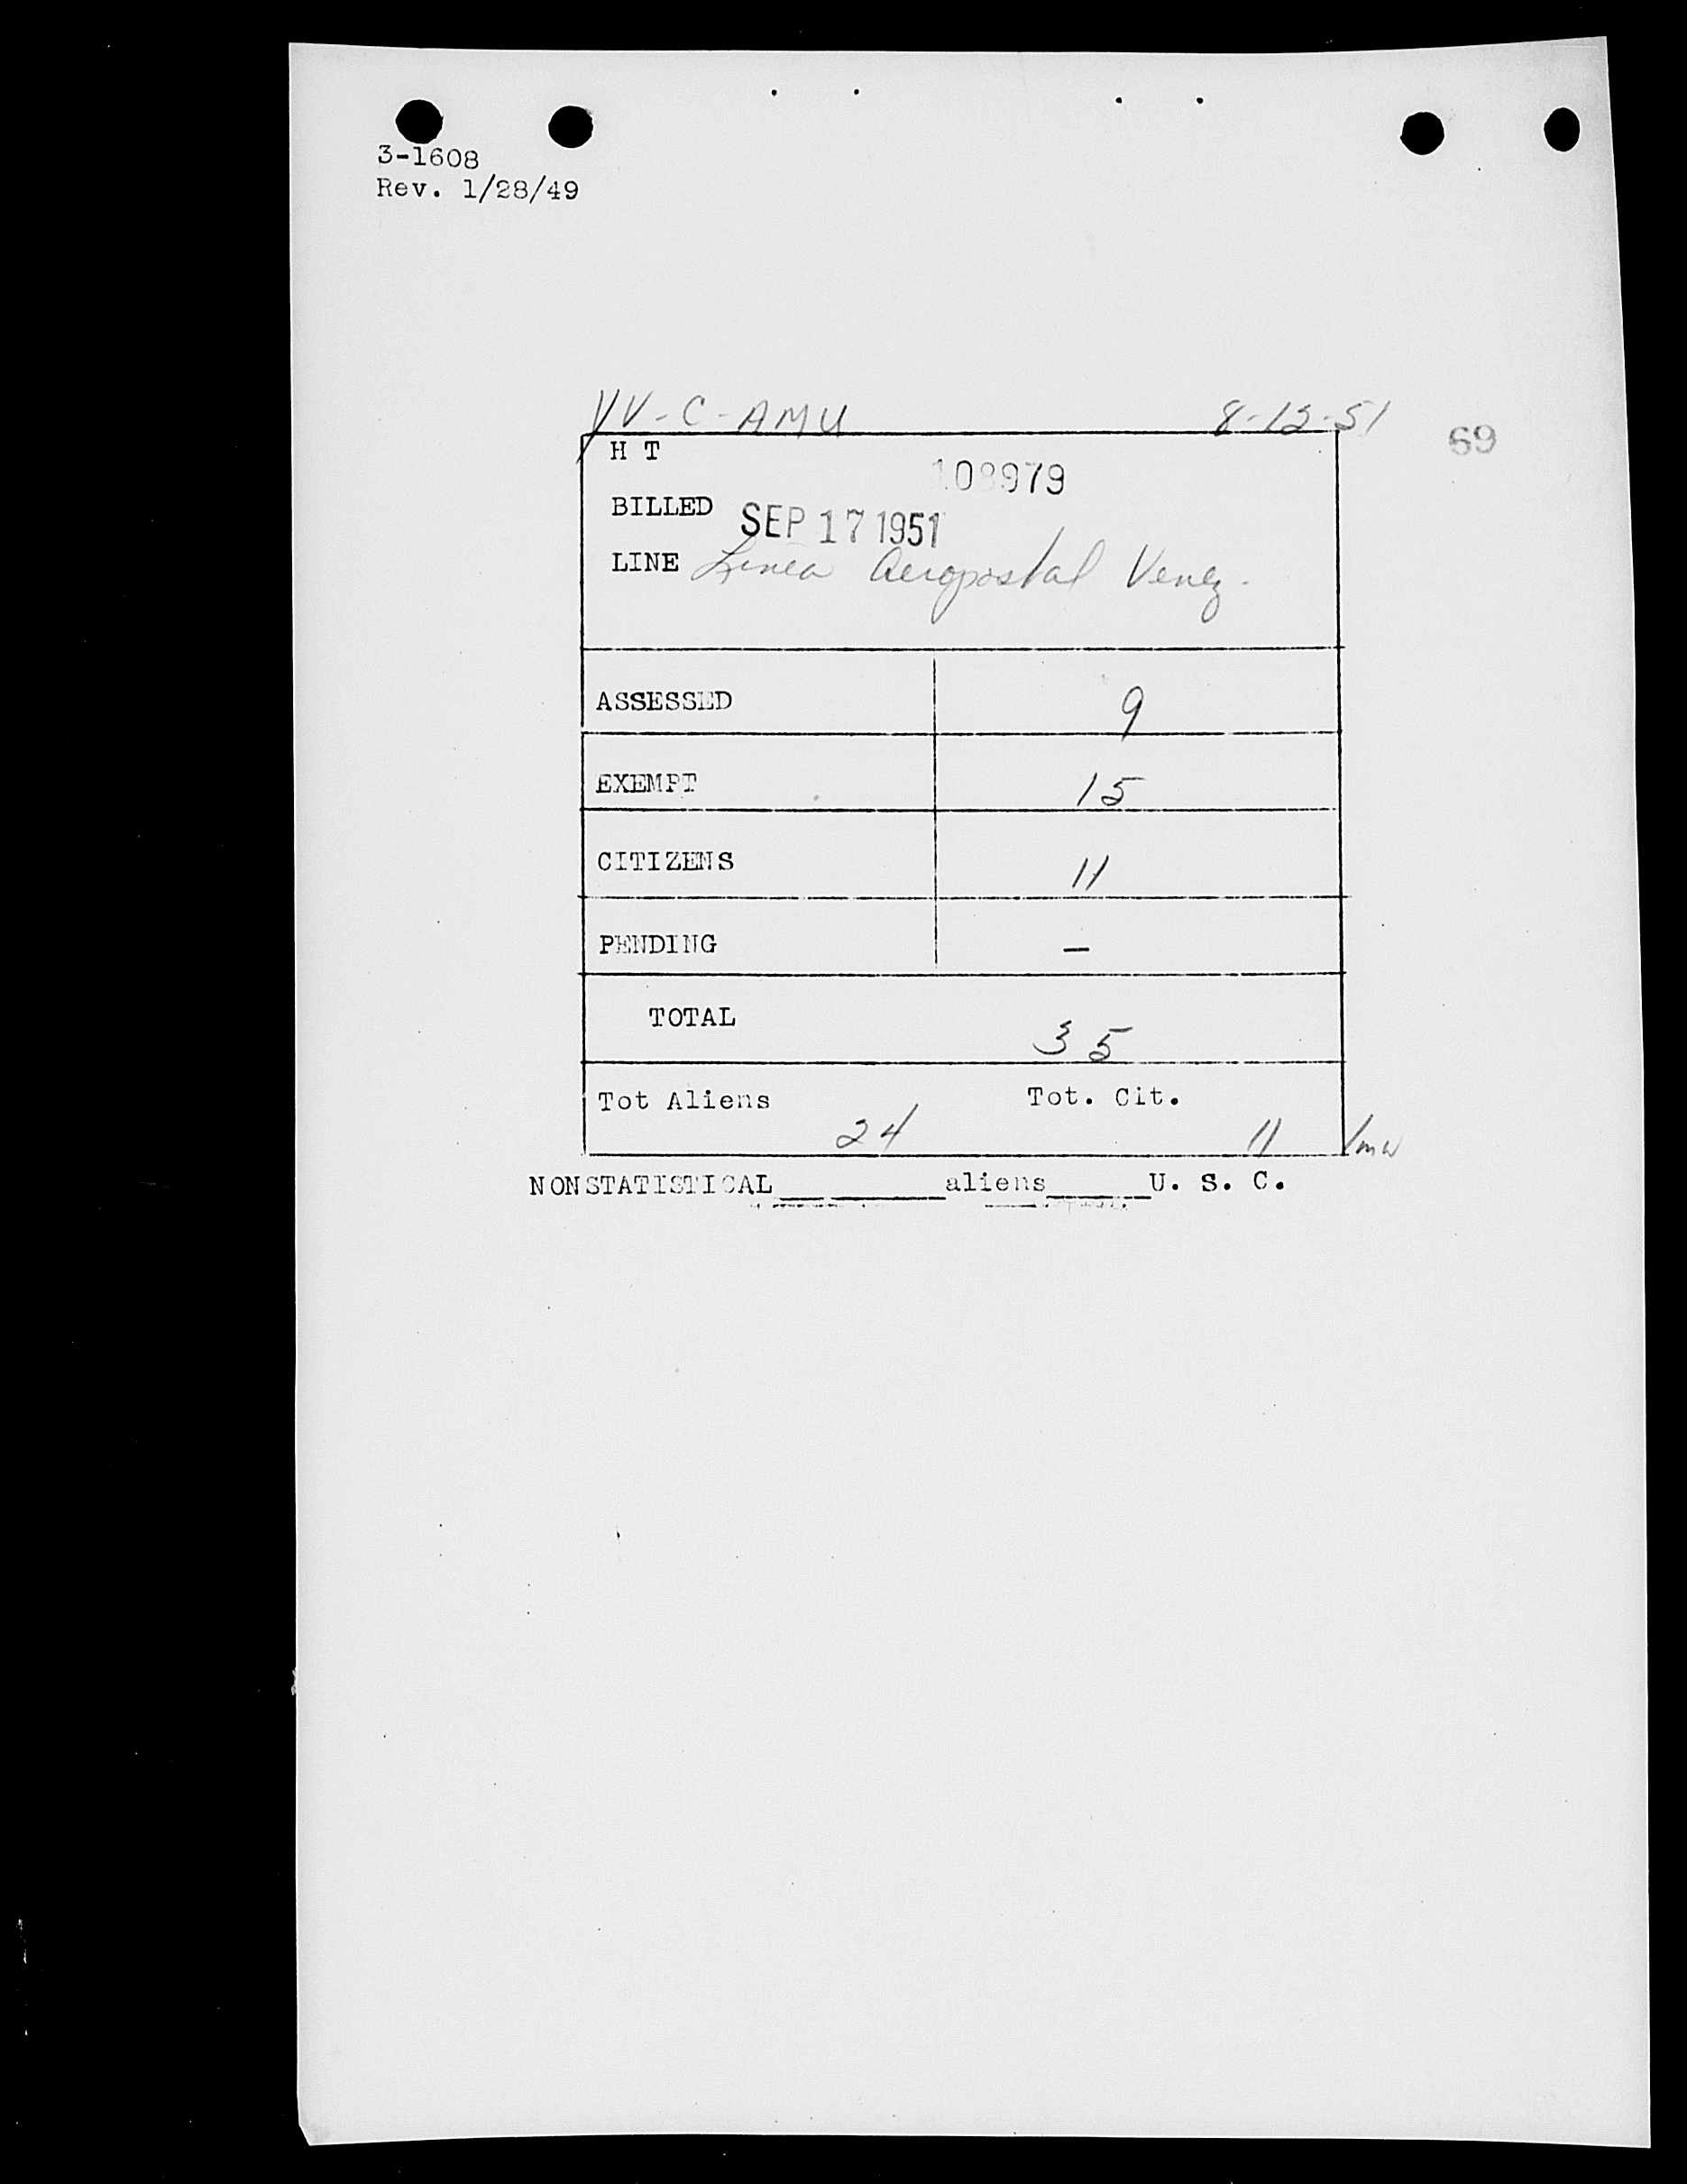 3-1608
Rev. 1/28/49
YV-C-AMU 8-12-51
69
H T
108979
BILLED SEP 17 1951
LINE Linea Aeropostal Venez.
ASSESSED 9
EXEMPT 15
CITIZENS 11
PENDING —
TOTAL 35
Tot Aliens 24 Tot. Cit. 11
NONSTATISTICAL__________aliens______U. S. C.